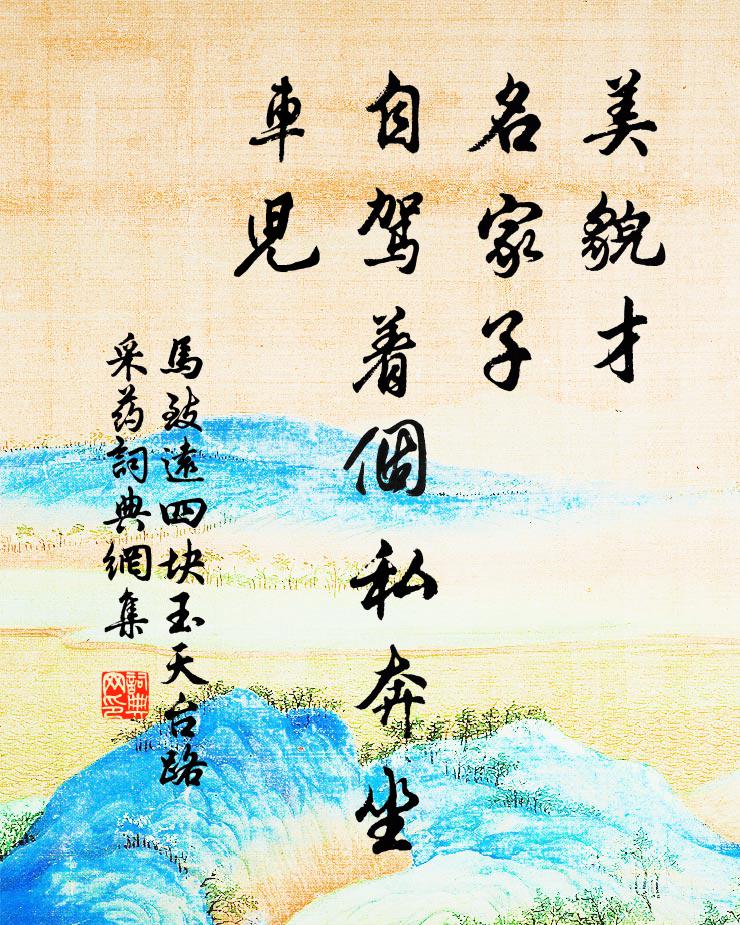 美貌才
名家子
自駕着個私奔坐
車児
馬致遠四块玉天台路
采药詞典網集
詞典
网印